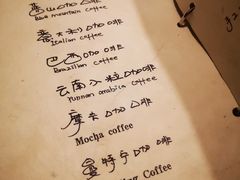 蓝山咖啡
Blue mountain coffee
意大利咖啡
Italian coffee
巴西咖啡
Brazilian coffee
云南小粒咖啡
Yunnan arabica coffee
摩卡咖啡
Mocha coffee
曼特宁咖啡
Coffee